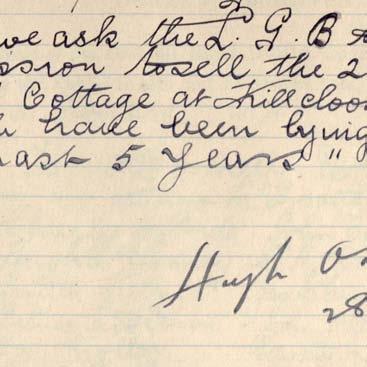 we ask the L. G. B
ssion to sell the 2
Cottage at Killcloo
have been lying
past 5 Years "
Hugh O
28